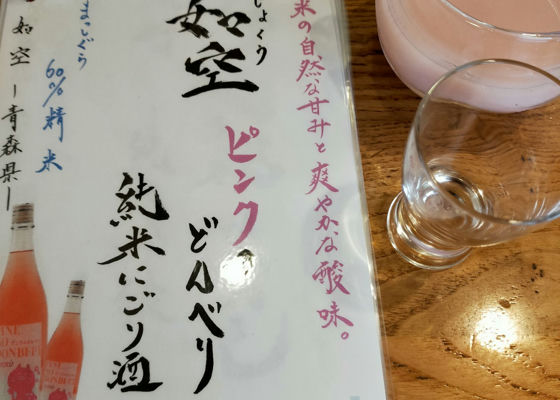 米の自然な甘みと爽やかな酸味。
じょくう
如空
ピンクの
どんべり
純米にごり酒
まっとう
60%精米
如空ー青森県ー